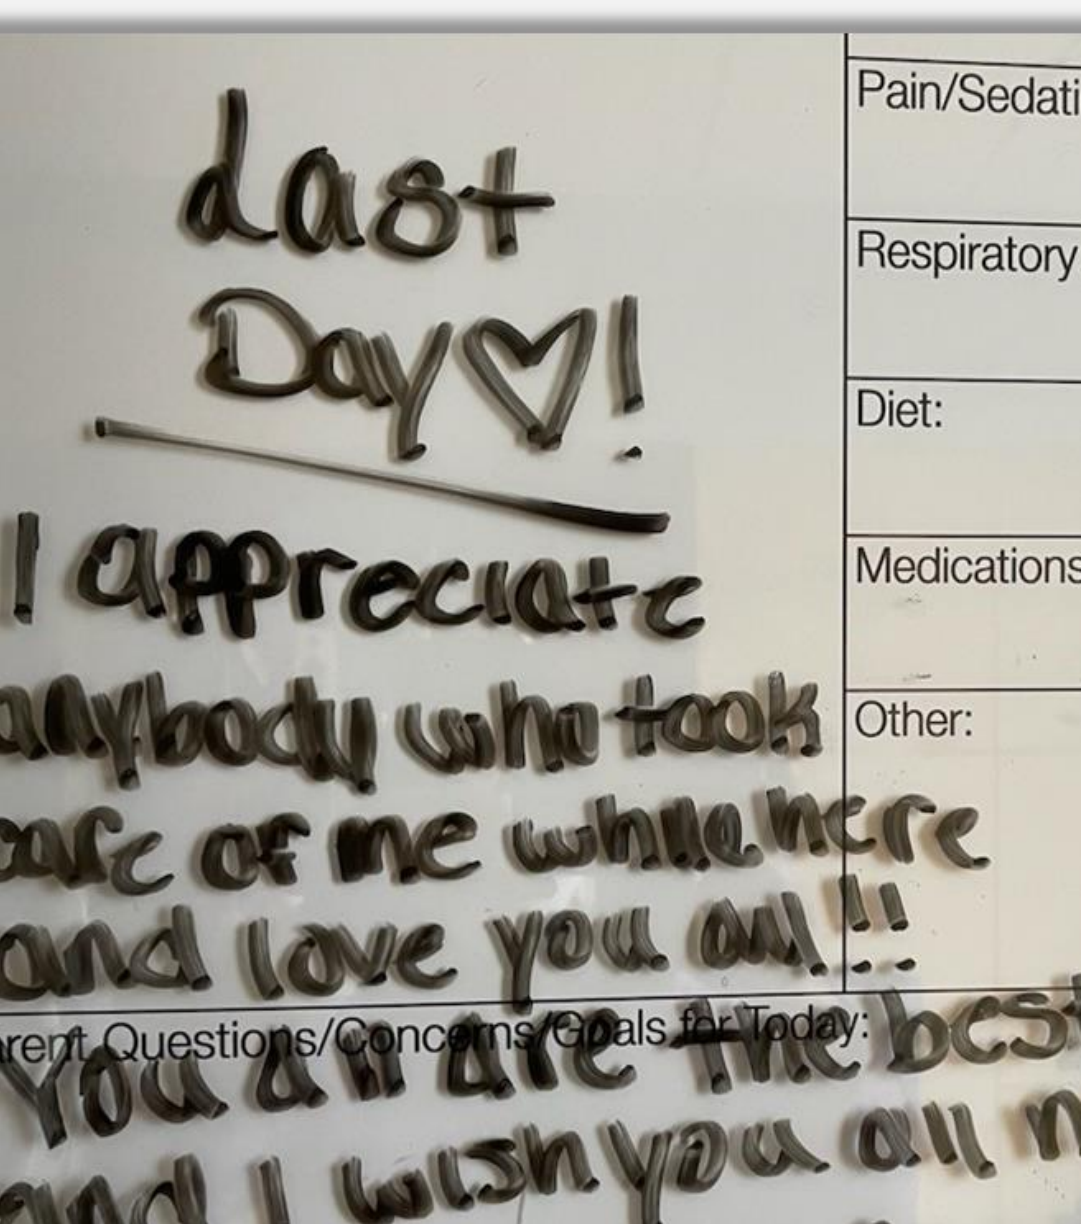 Last
Day♡!
I appreciate
anybody who took
care of me while here
and love you all!!!
You all are the best
and I wish you all
Pain/Sedati
Respiratory
Diet:
Medications
Other:
rent Questions/Concerns/Goals for Today: